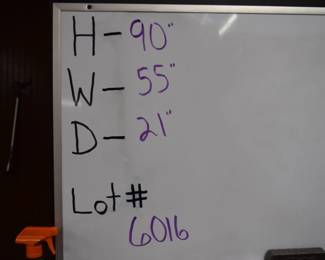 H- 90"
W- 55"
D- 21"
Lot#
6016